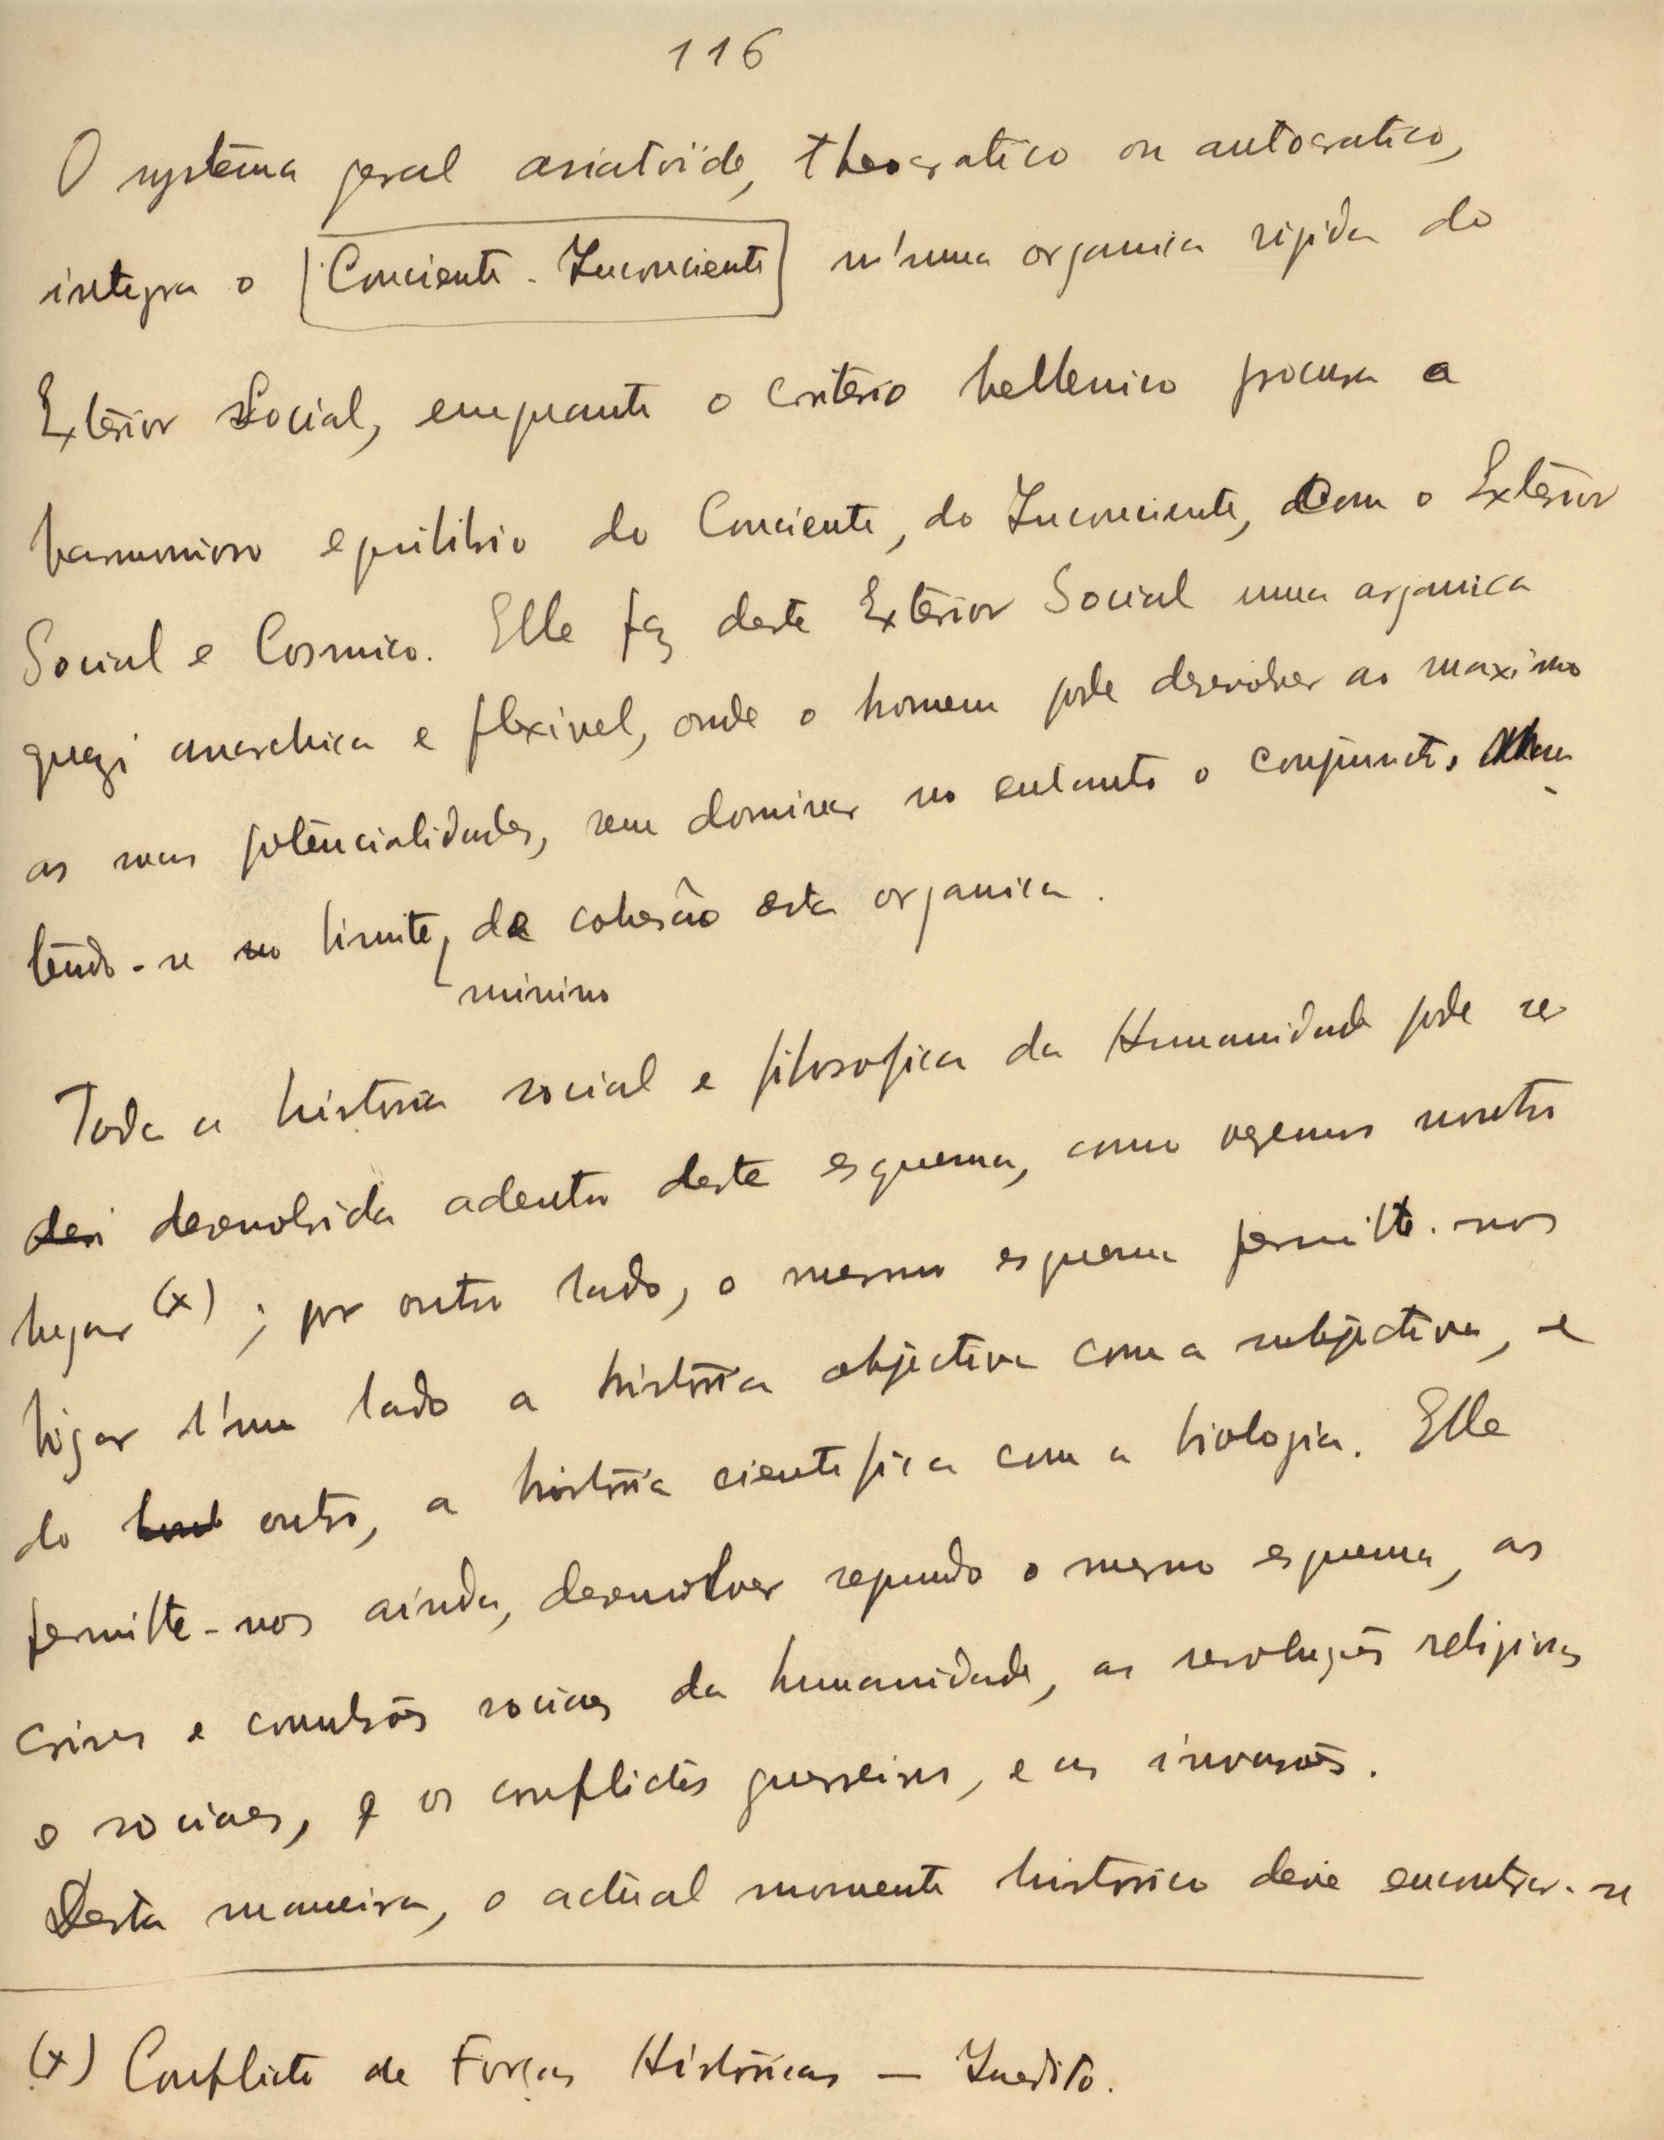 116
O systema geral asiatoide, theocratico ou autocratico,
integra o [Conciente - Inconciente] n'uma organica rigida do
Exterior Social, emquanto o criterio hellenico procura o
harmonioso equilibrio do Conciente, do Inconciente, com o Exterior
Social e Cosmico. Elle faz deste Exterior Social uma organica
quazi anarchica e flexivel, onde o homem pode desenvolver ao maximo
as suas potencialidades, sem dominar no entanto o conjuncto,
tendo-se no limite, de cohesão esta organica.
minimo
Toda a historia social e filosofica da Humanidade pode ser
desenvolvida adentro deste esquema, como vezemos noutro
lugar (x); por outro lado, o mesmo esquema permitte-nos
ligar d'um lado a história objectiva com a subjectiva, e
do outro, a história cientifica com a biologia. Elle
permitte-nos ainda, desenvolver segundo o mesmo esquema, as
crises e convulsões sociaes da humanidade, as revoluções religiosas
e sociaes, e os conflictos guerreiros, e as invasões.
Desta maneira, o actual momento historico deve encontrar-se
(x) Conflicto de Forças Históricas — Inedito.